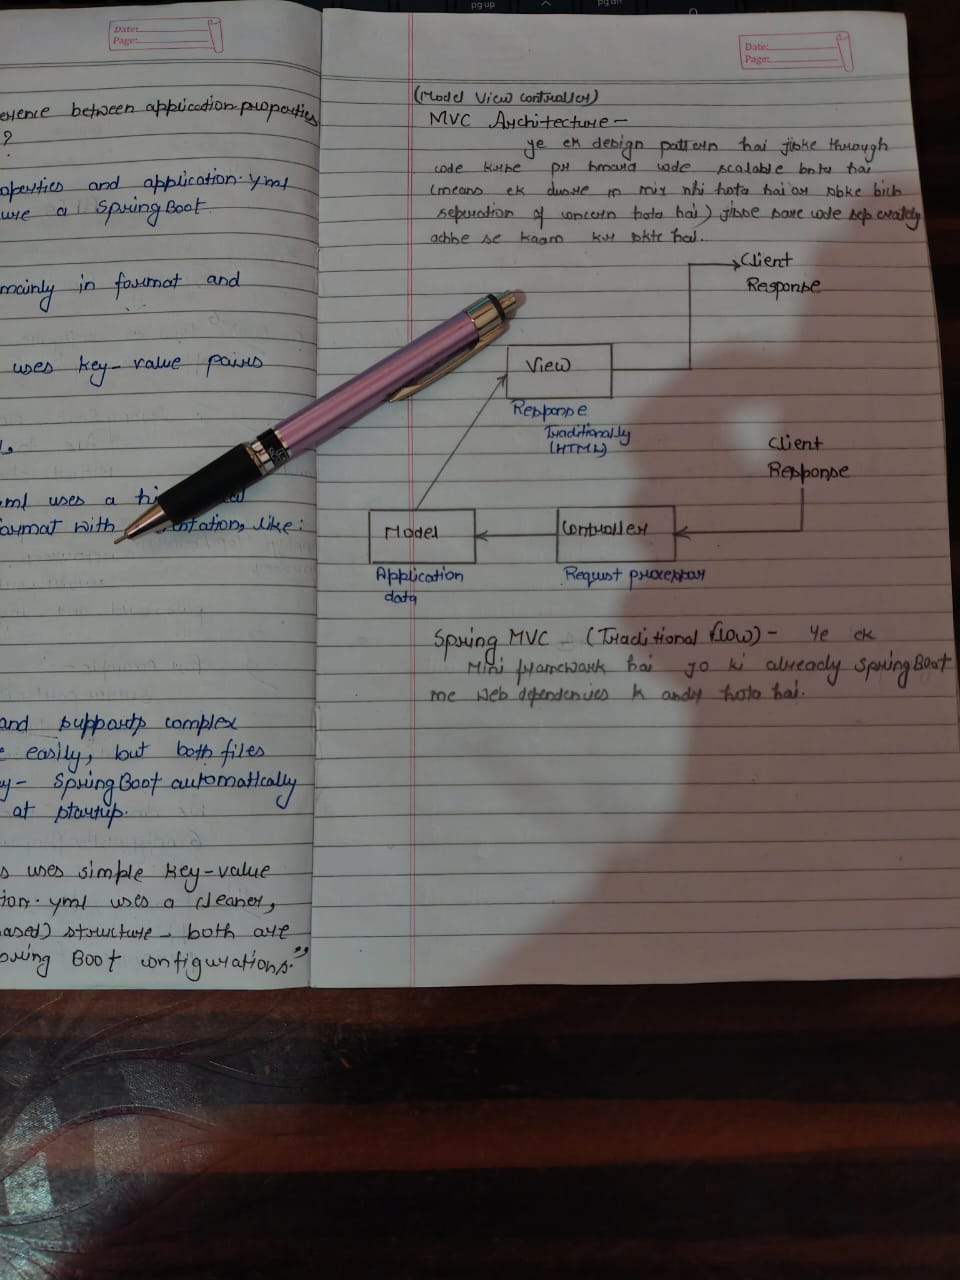 pg up
Date:
Page:
erence between application.properties
?
operties and application.yml
ure a SpringBoot
mainly in format and
uses key-value pairs
.yml uses a
format with like:
and supports complex
easily, but both files
y- SpringBoot automatically
at startup.
s uses simple key-value
tion.yml uses a cleaner,
ased) structure - both are
pring Boot configurations."
Date:
Page:
(Model View Controller)
MVC Architecture -
ye ek design pattern hai jiske through
code krne pr hmara code scalable bnta hai
(means ek dusre m mix nhi hota hai or sbke bich
separation of concern hota hai) jisse sare code separately
achhe se kaam kr skte hai..
Client
Response
View
Response
Traditionally
(HTML)
Client
Response
Model
Controller
Application
data
Request processor
Spring MVC (Traditional flow) - Ye ek
Mini framework hai jo ki already SpringBoot
me web dependencies k andr hota hai.